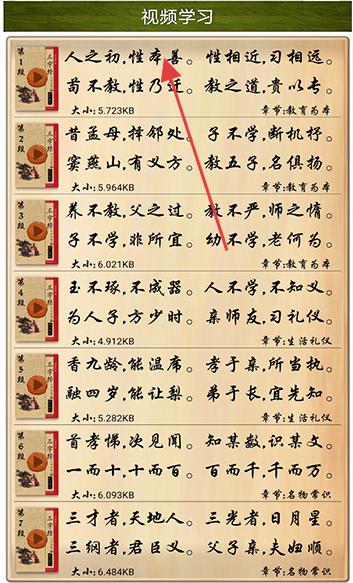 视频学习
三字经
第1段
人之初,性本善。 性相近,习相远。
苟不教,性乃迁。 教之道,贵以专。
大小:5.723KB 章节:教育为本
三字经
第2段
昔孟母,择邻处。 子不学,断机杼。
窦燕山,有义方。 教五子,名俱扬。
大小:5.964KB 章节:教育为本
三字经
第3段
养不教,父之过。 教不严,师之惰。
子不学,非所宜。 幼不学,老何为。
大小:6.021KB 章节:教育为本
三字经
第4段
玉不琢,不成器。 人不学,不知义。
为人子,方少时。 亲师友,习礼仪。
大小:4.912KB 章节:生活礼仪
三字经
第5段
香九龄,能温席。 孝于亲,所当执。
融四岁,能让梨。 弟于长,宜先知。
大小:5.282KB 章节:生活礼仪
三字经
第6段
首孝悌,次见闻。 知某数,识某文。
一而十,十而百。 百而千,千而万。
大小:6.093KB 章节:名物常识
三字经
第7段
三才者,天地人。 三光者,日月星。
三纲者,君臣义。 父子亲,夫妇顺。
大小:6.484KB 章节:名物常识